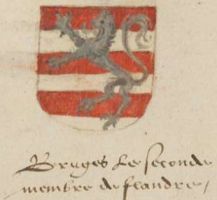 Bruges le seconde
membre de flandre /